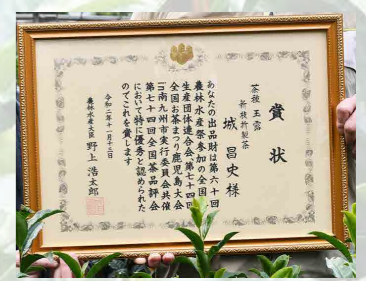 賞状
茶種 玉露
新枝折製茶
城 昌史様
あなたの出品財は第六十回
農林水産祭参加の全国茶
生産団体連合会、第七十四回
全国お茶まつり鹿児島大会
in南九州市実行委員会共催
第七十四回全国茶品評会
において特に優秀と認められた
のでこれを賞します
令和二年十一月十三日
農林水産大臣 野上 浩太郎